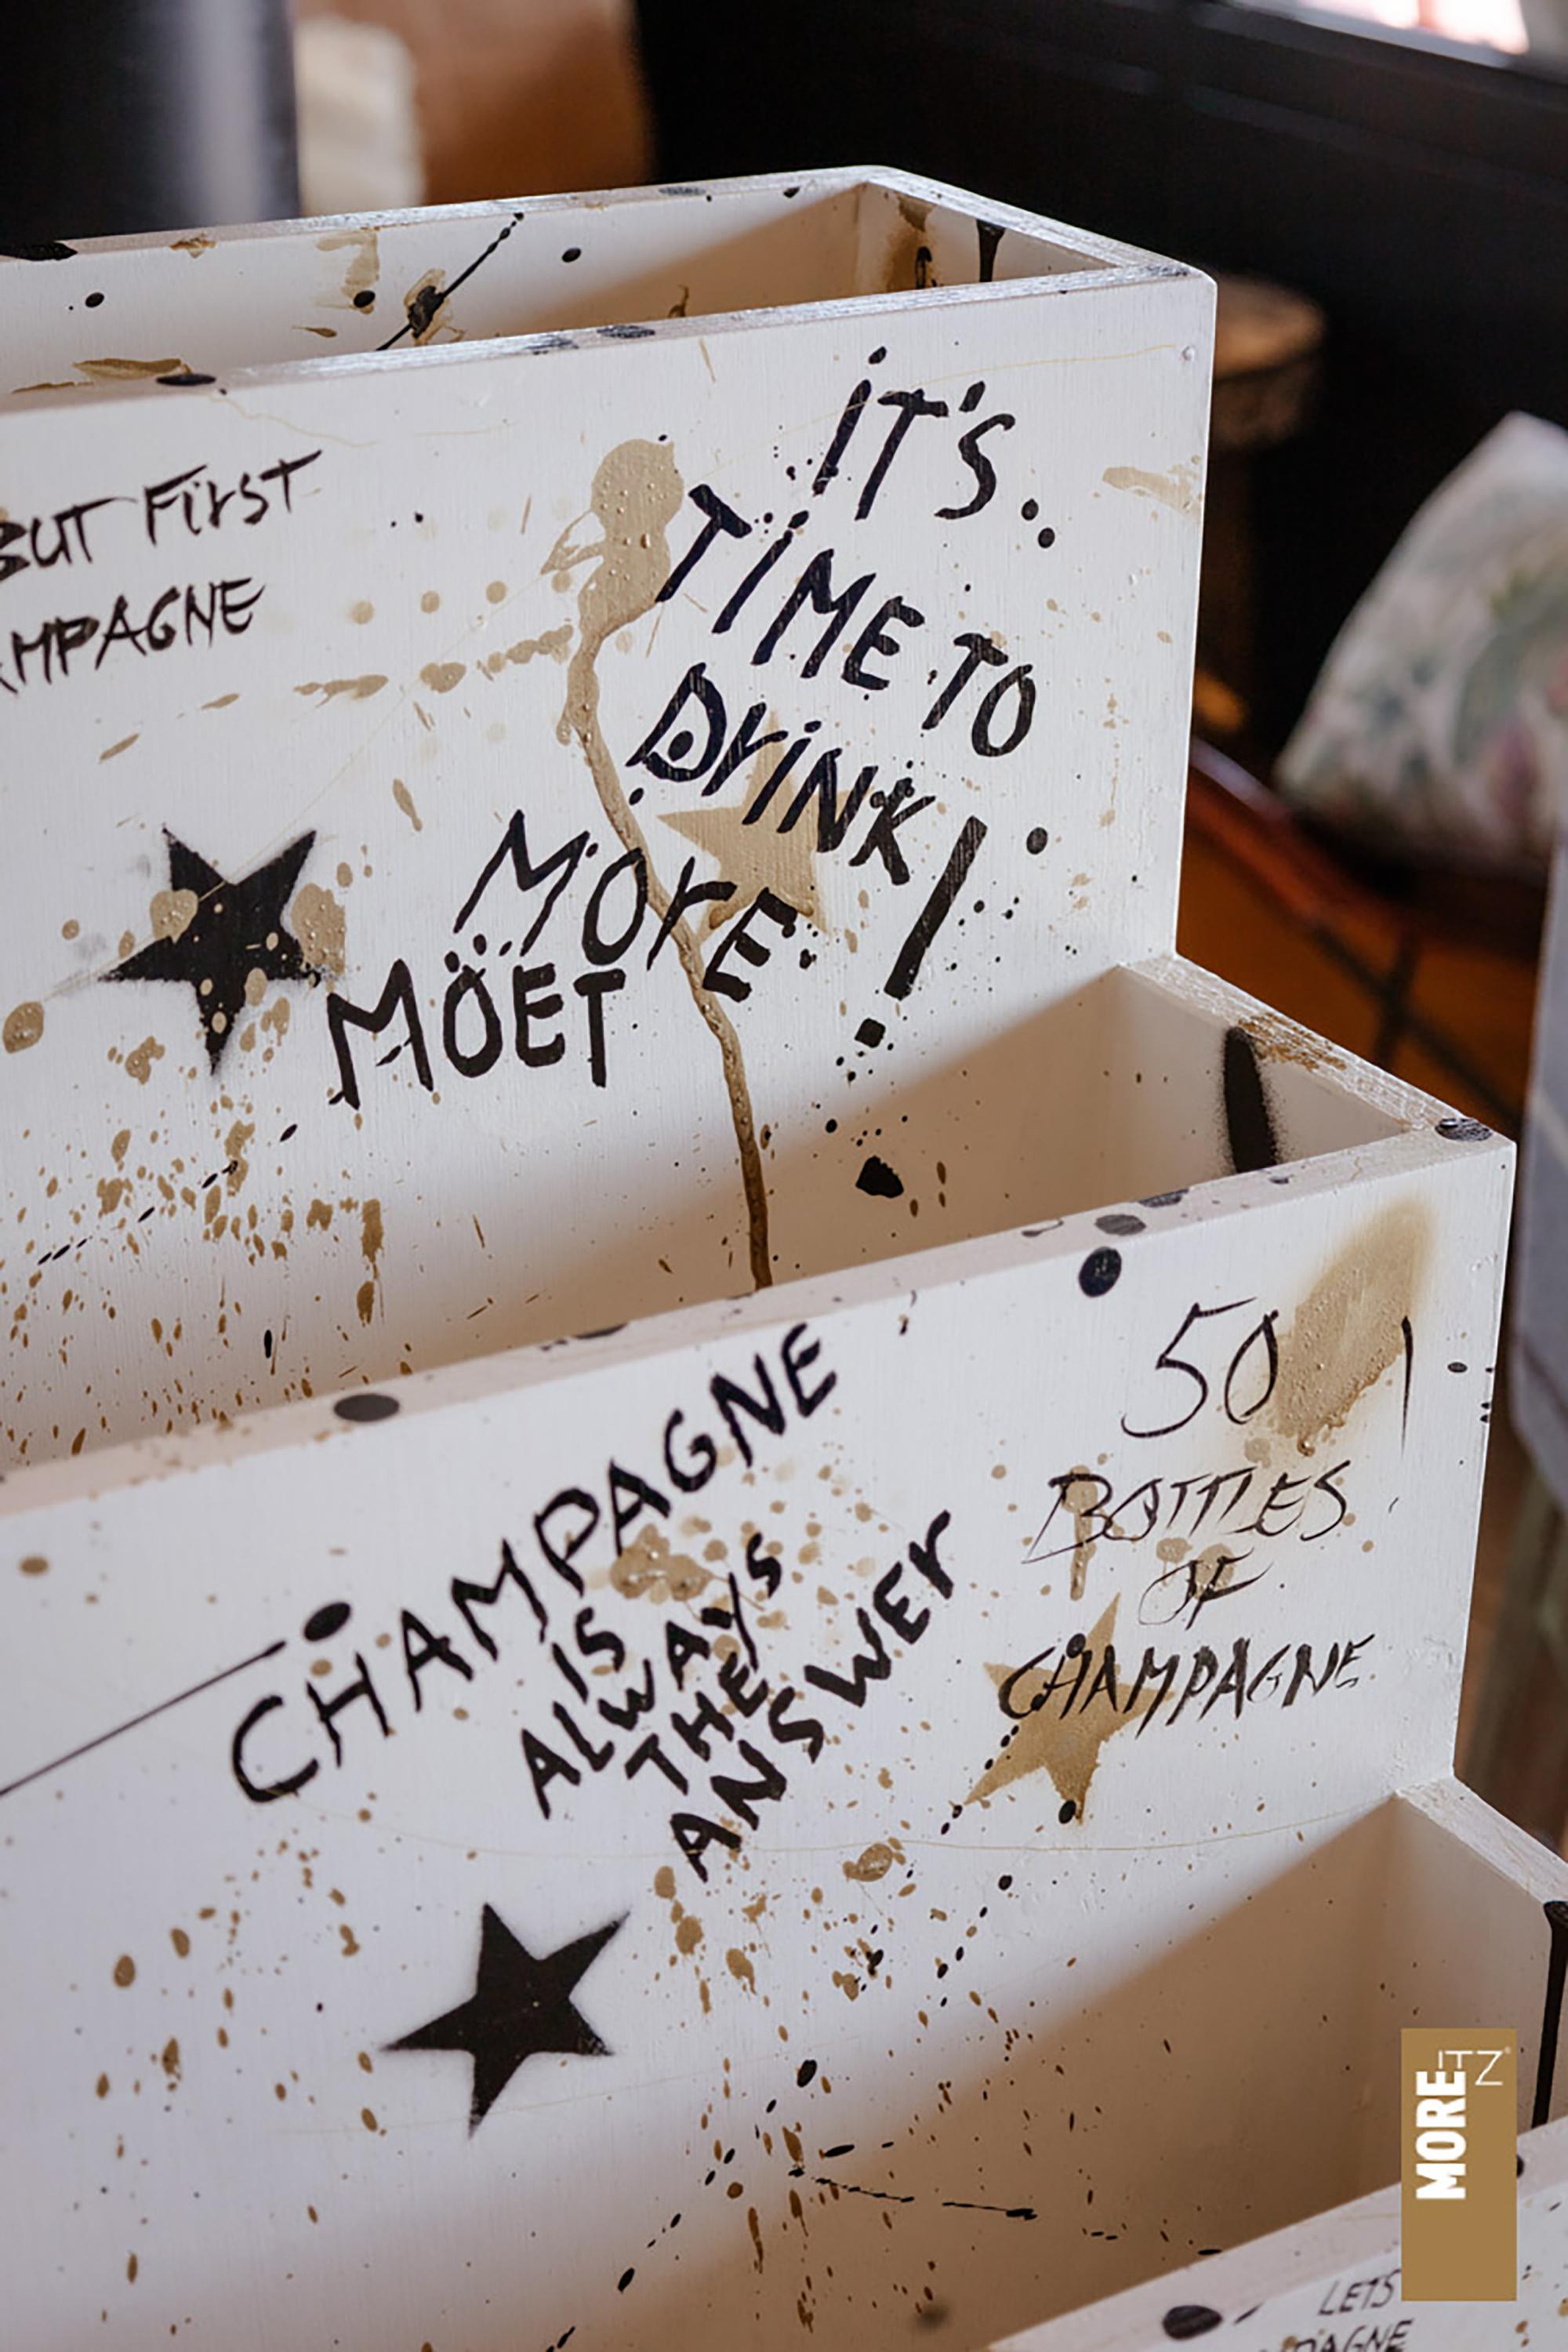 BUT First
AMPAGNE
iT'S..
TiME TO
DriNK!
MOrE
MÖET
CHAMPAGNE
IS
ALWAYS
THE
ANSWEr
50
BOTTLES
OF
CHAMPAGNE
LETS
PAGNE
MOREITZ